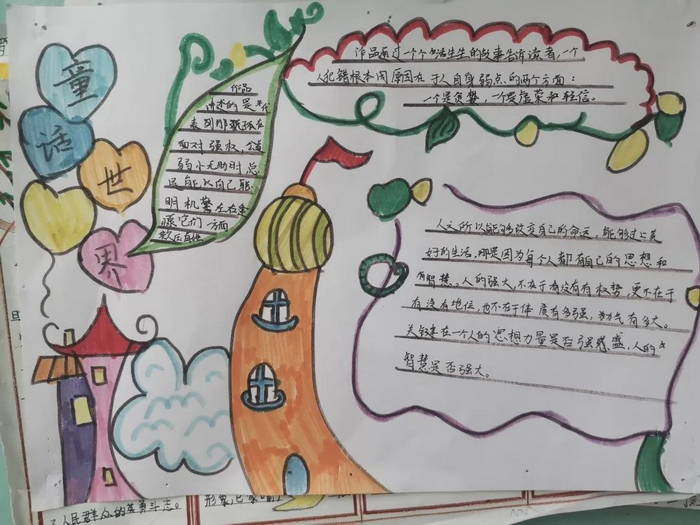 童
话
世
界
作品
讲述的是年代
表列那狐狸在
面对强权,公道
弱小无助时总
是能以自己聪
明机警左右逢
源它们一方面
作品通过一个个活生生的故事告诉读者,一个
人犯错根本闪原因在于人自身弱点的两个方面:
一个是贪婪,一个是虚荣和轻信。
人之所以能够改变自己的命运,能够过上美
好的生活,哪是因为每个人都有自己的思想和
智慧。人的强大,不在于有没有有权势,更不在于
有没有地位,也不在于体质有多强,有多大。
关键在一个人的思想力量是否强盛,人的
智慧是否强大。
人民群众的英勇斗志。